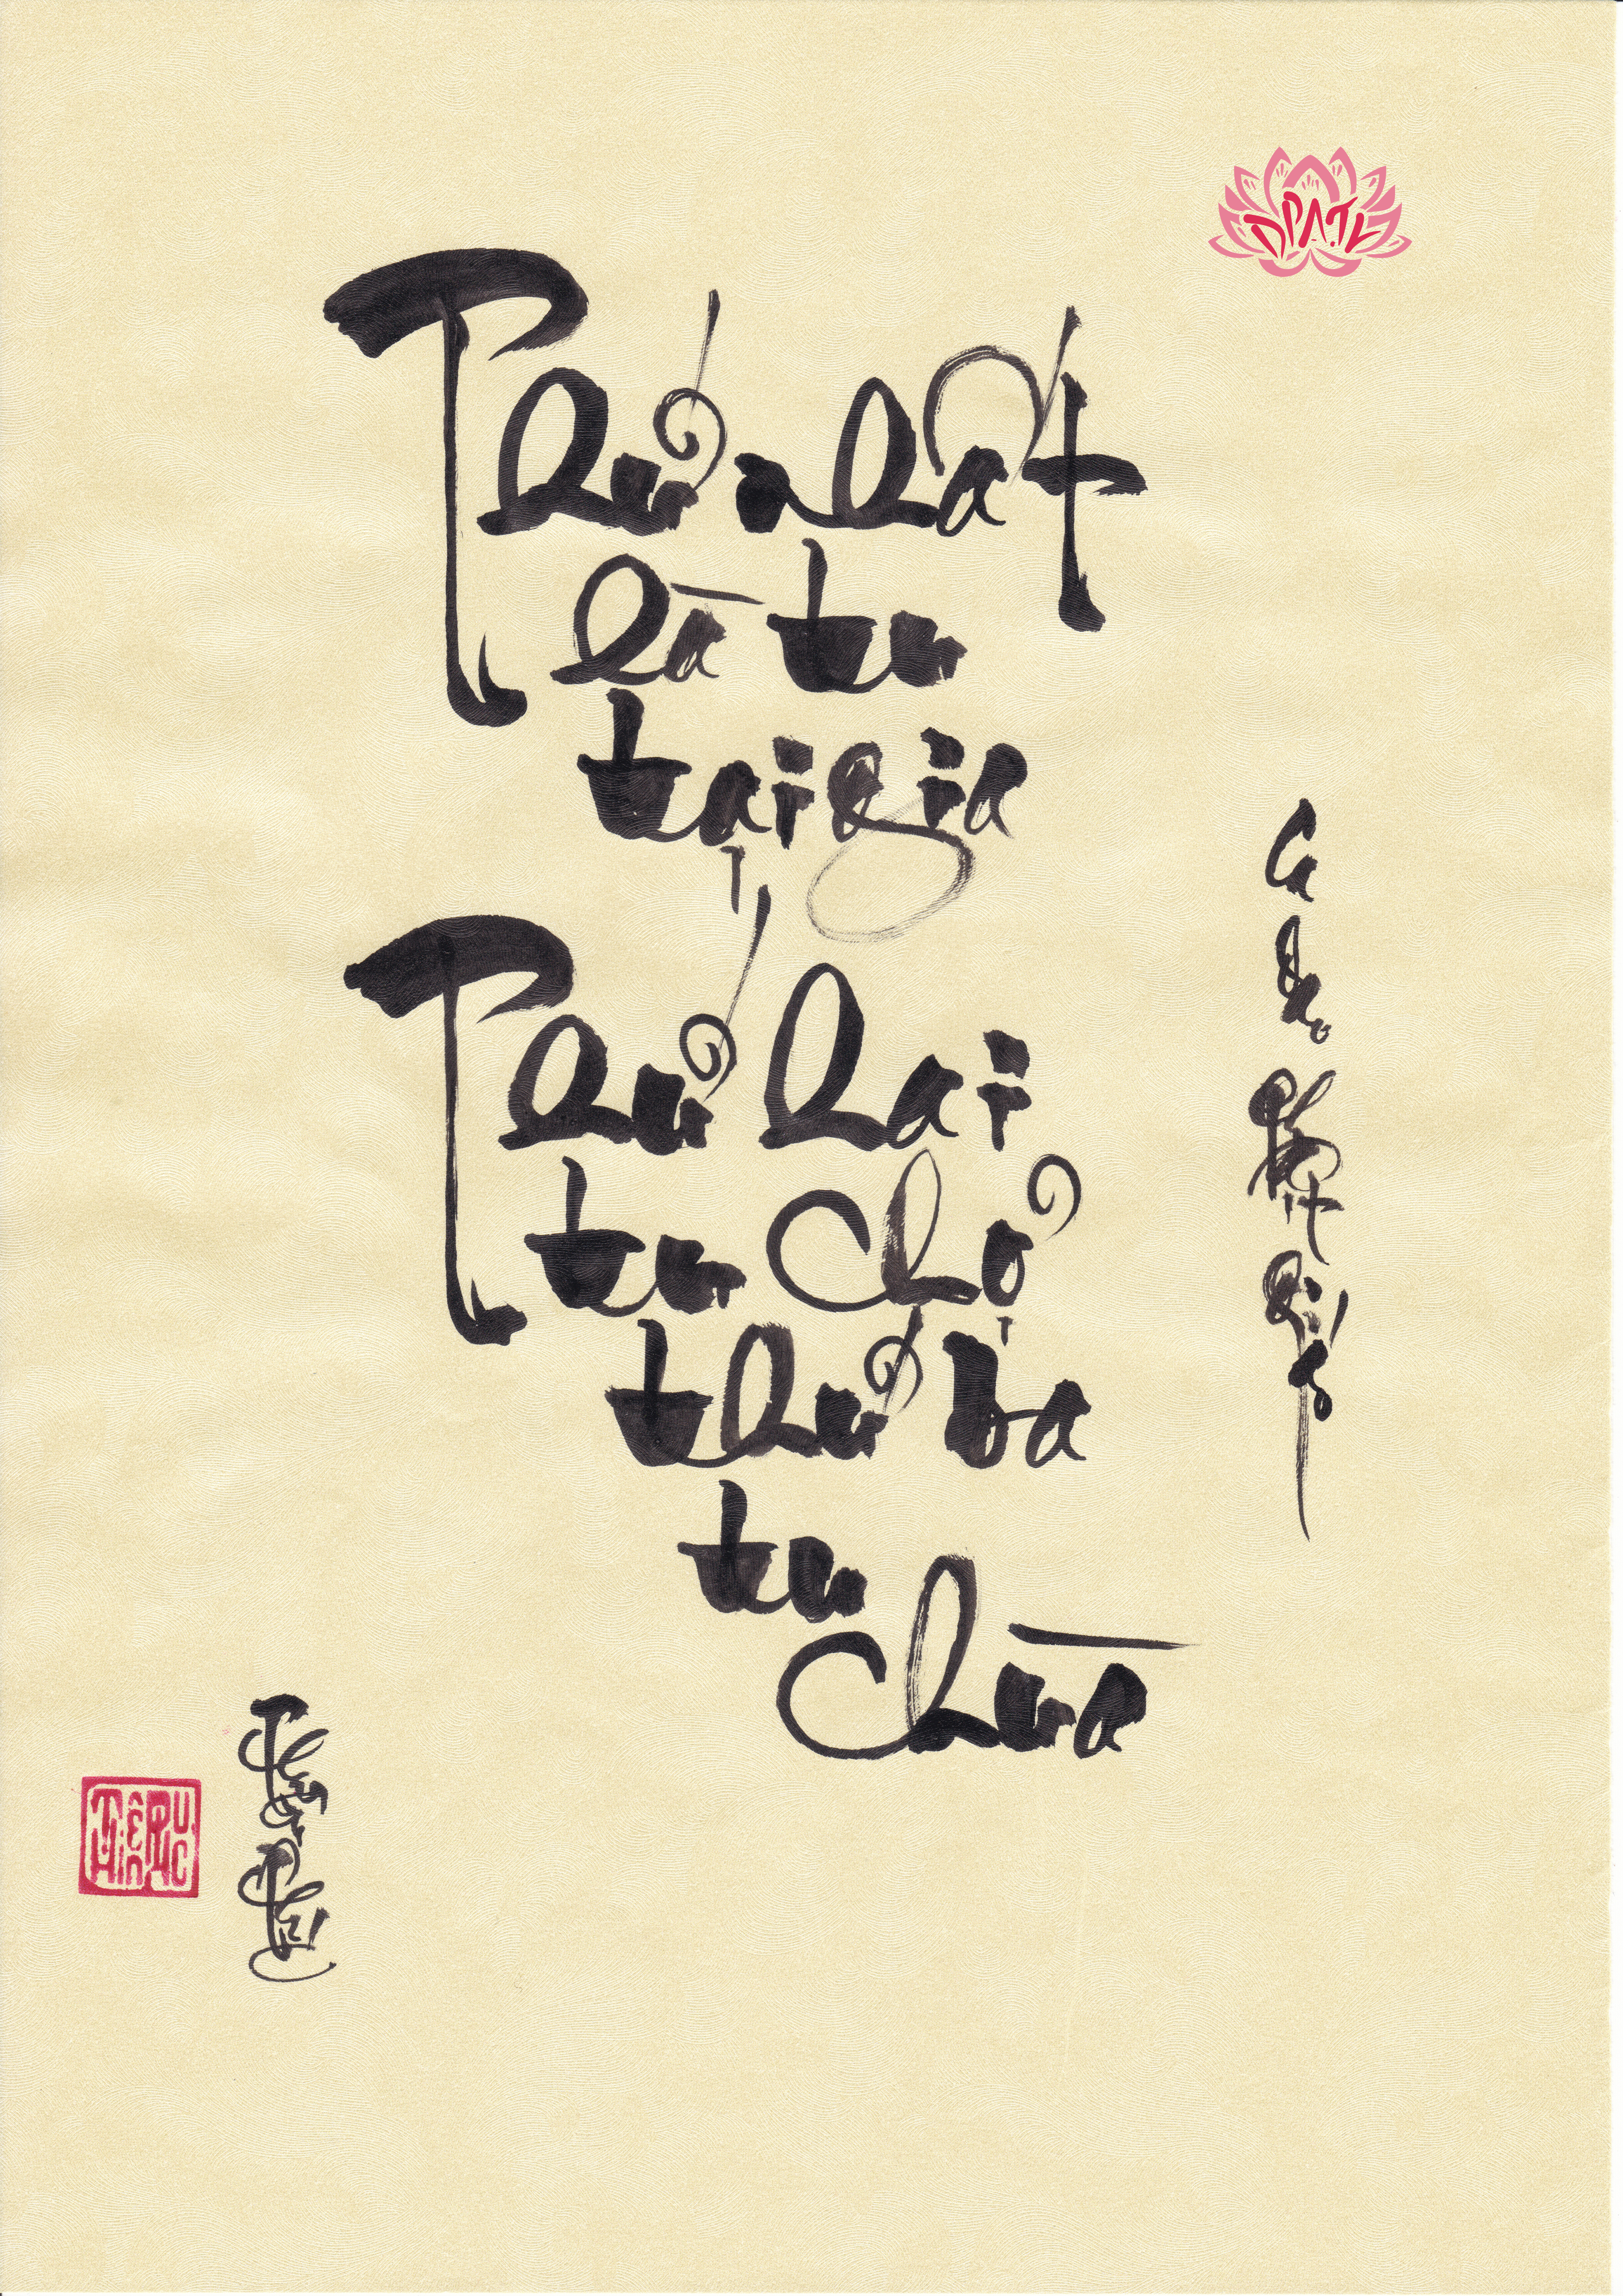 Thứ nhất
là tu
tại gia
Thứ hai
tu chợ
thứ ba
tu
chùa
Ca
dao
Phật
giáo
THIỆN PHÚC